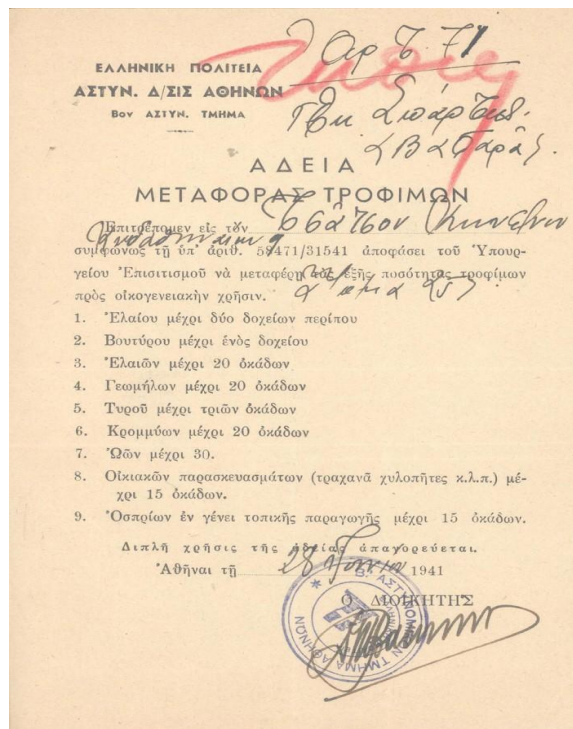 Αρ τ. 71
ΕΛΛΗΝΙΚΗ ΠΟΛΙΤΕΙΑ
ΑΣΤΥΝ. Δ/ΣΙΣ ΑΘΗΝΩΝ
8ον ΑΣΤΥΝ. ΤΜΗΜΑ
ΑΔΕΙΑ
ΜΕΤΑΦΟΡΑΣ ΤΡΟΦΙΜΩΝ
Ἐπιτρέπομεν εἰς τὸν
συμφώνως τῇ ὑπ' ἀριθ. 58471/31541 ἀποφάσει τοῦ Ὑπουρ-
γείου Ἐπισιτισμοῦ νὰ μεταφέρῃ τὰς ἑξῆς ποσότητας τροφίμων
πρὸς οἰκογενειακὴν χρῆσιν.
1. Ἐλαίου μέχρι δύο δοχείων περίπου
2. Βουτύρου μέχρι ἑνὸς δοχείου
3. Ἐλαιῶν μέχρι 20 ὀκάδων
4. Γεωμήλων μέχρι 20 ὀκάδων
5. Τυροῦ μέχρι τριῶν ὀκάδων
6. Κρομμύων μέχρι 20 ὀκάδων
7. Ὠῶν μέχρι 30.
8. Οἰκιακῶν παρασκευασμάτων (τραχανᾶ χυλοπῆτες κ.λ.π.) μέ-
χρι 15 ὀκάδων.
9. Ὀσπρίων ἐν γένει τοπικῆς παραγωγῆς μέχρι 15 ὀκάδων.
Διπλῆ χρῆσις τῆς ἀδείας ἀπαγορεύεται.
Ἀθῆναι τῇ 28 1941
Ο ΔΙΟΙΚΗΤΗΣ
ΑΣΤΥΝΟΜΙΚΟΝ ΤΜΗΜΑ ΑΘΗΝΩΝ